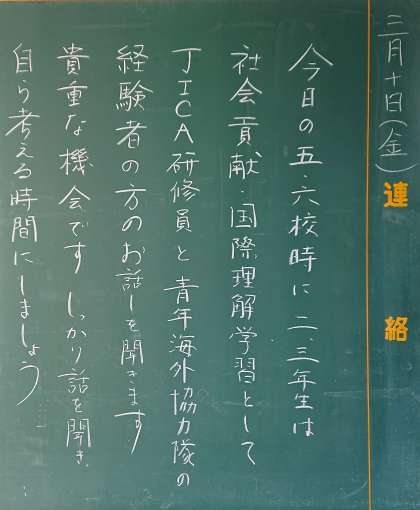 二月十日(金)
連絡
今日の五・六校時に二、三年生は
社会貢献・国際理解学習として
JICA研修員と青年海外協力隊の
経験者の方のお話しを聞きます
貴重な機会です しっかり話を聞き
自ら考える時間にしましょう